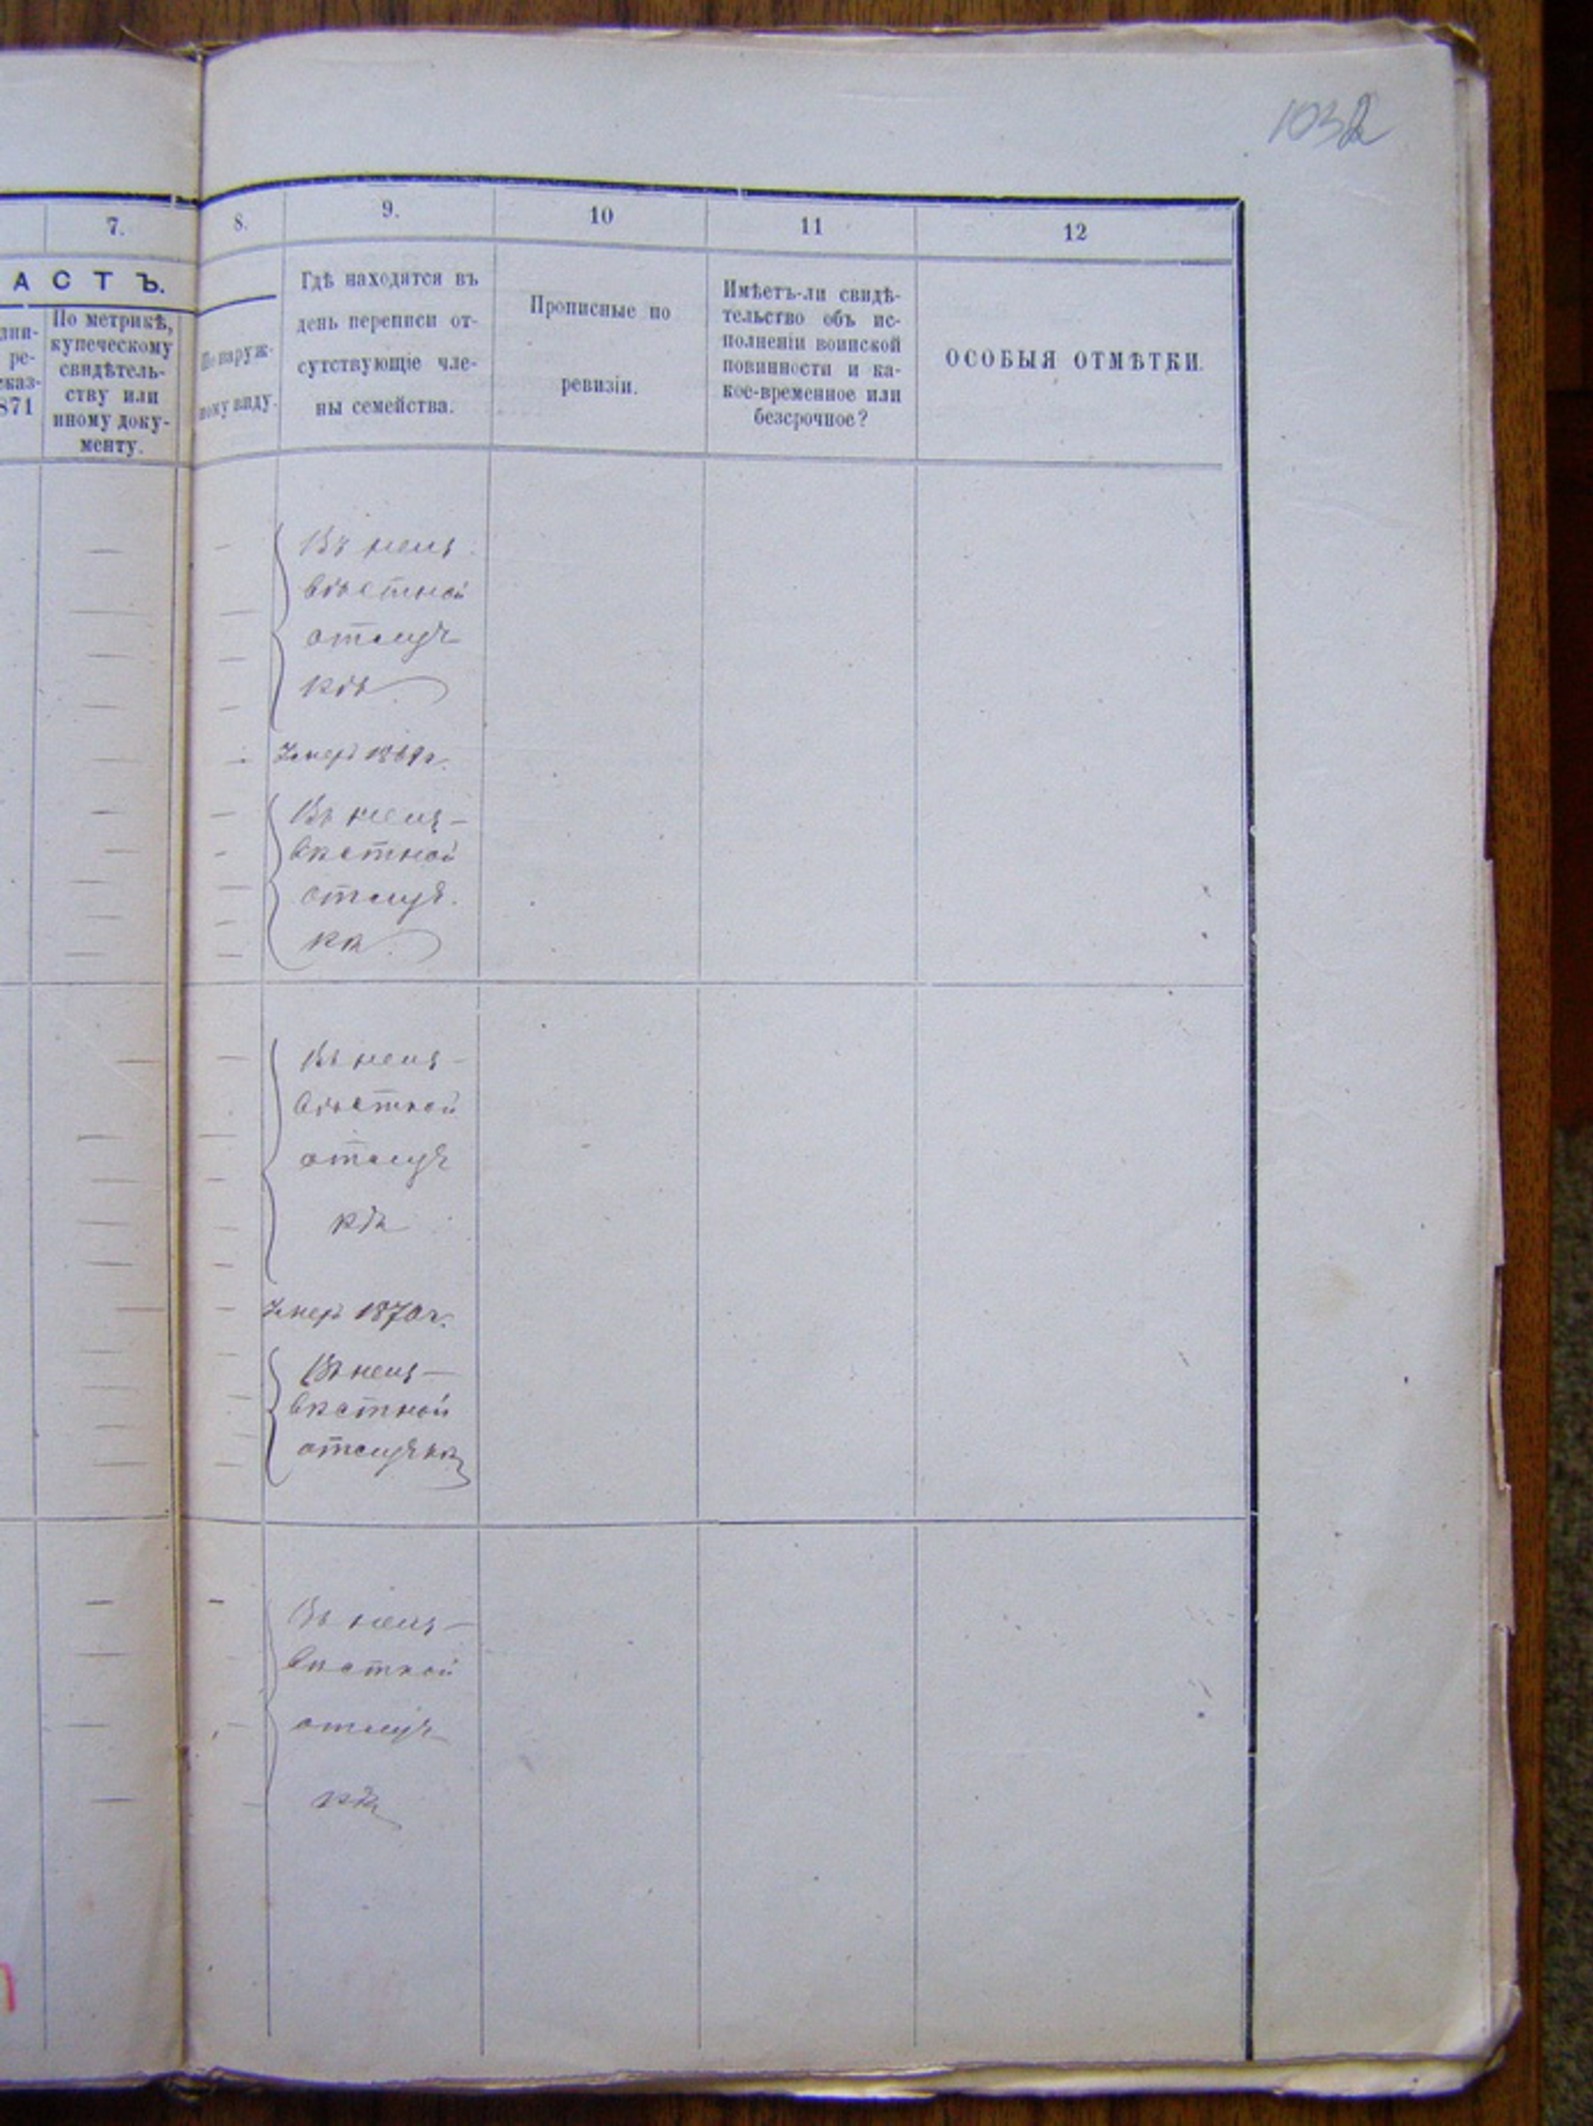 1032
7.
8.
9.
10
11
12
АСТЪ.
зни-
ре-
сказ-
871
По метрикѣ,
купеческому
свидѣтель-
ству или
иному доку-
менту.
По наруж-
ному виду.
Гдѣ находятся въ
день переписи от-
сутствующіе чле-
ны семейства.
Прописные по
ревизіи.
Имѣетъ-ли свидѣ-
тельство объ ис-
полненіи воинской
повинности и ка-
кое-временное или
безсрочное?
ОСОБЫЯ ОТМѢТКИ.
Въ неиз
вѣстной
отлуч
кѣ
Умеръ 1869 г.
Въ неиз-
вѣстной
отлуч.
кѣ
Въ неиз-
вѣстной
отлуч
кѣ
Умеръ 1870 г.
Въ неиз-
вѣстной
отлучкѣ
Въ неиз-
вѣстной
отлуч
кѣ